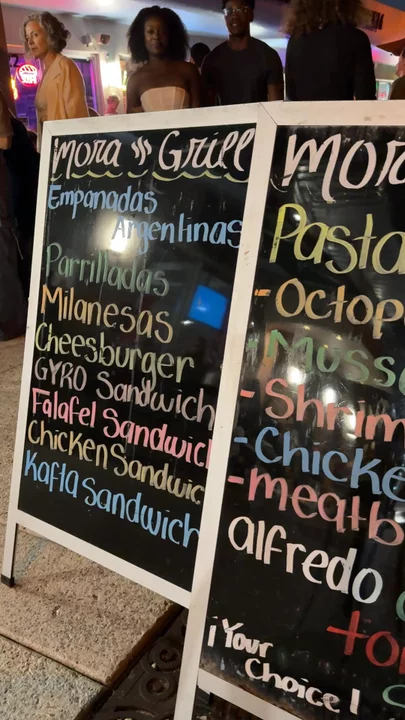 Mora Grill
Empanadas
Argentinas
Parrilladas
Milanesas
Cheesburger
GYRO Sandwich
Falafel Sandwich
Chicken Sandwic
Kafta Sandwich
Mor
Pasta
- Octop
- Muss
- Shrim
- Chicke
- meatb
alfredo
tor
¡Your
Choice!